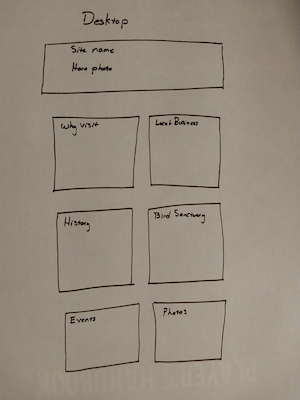 Desktop
Site name
Hero photo
Why visit
Local Business
History
Bird Sanctuary
Events
Photos